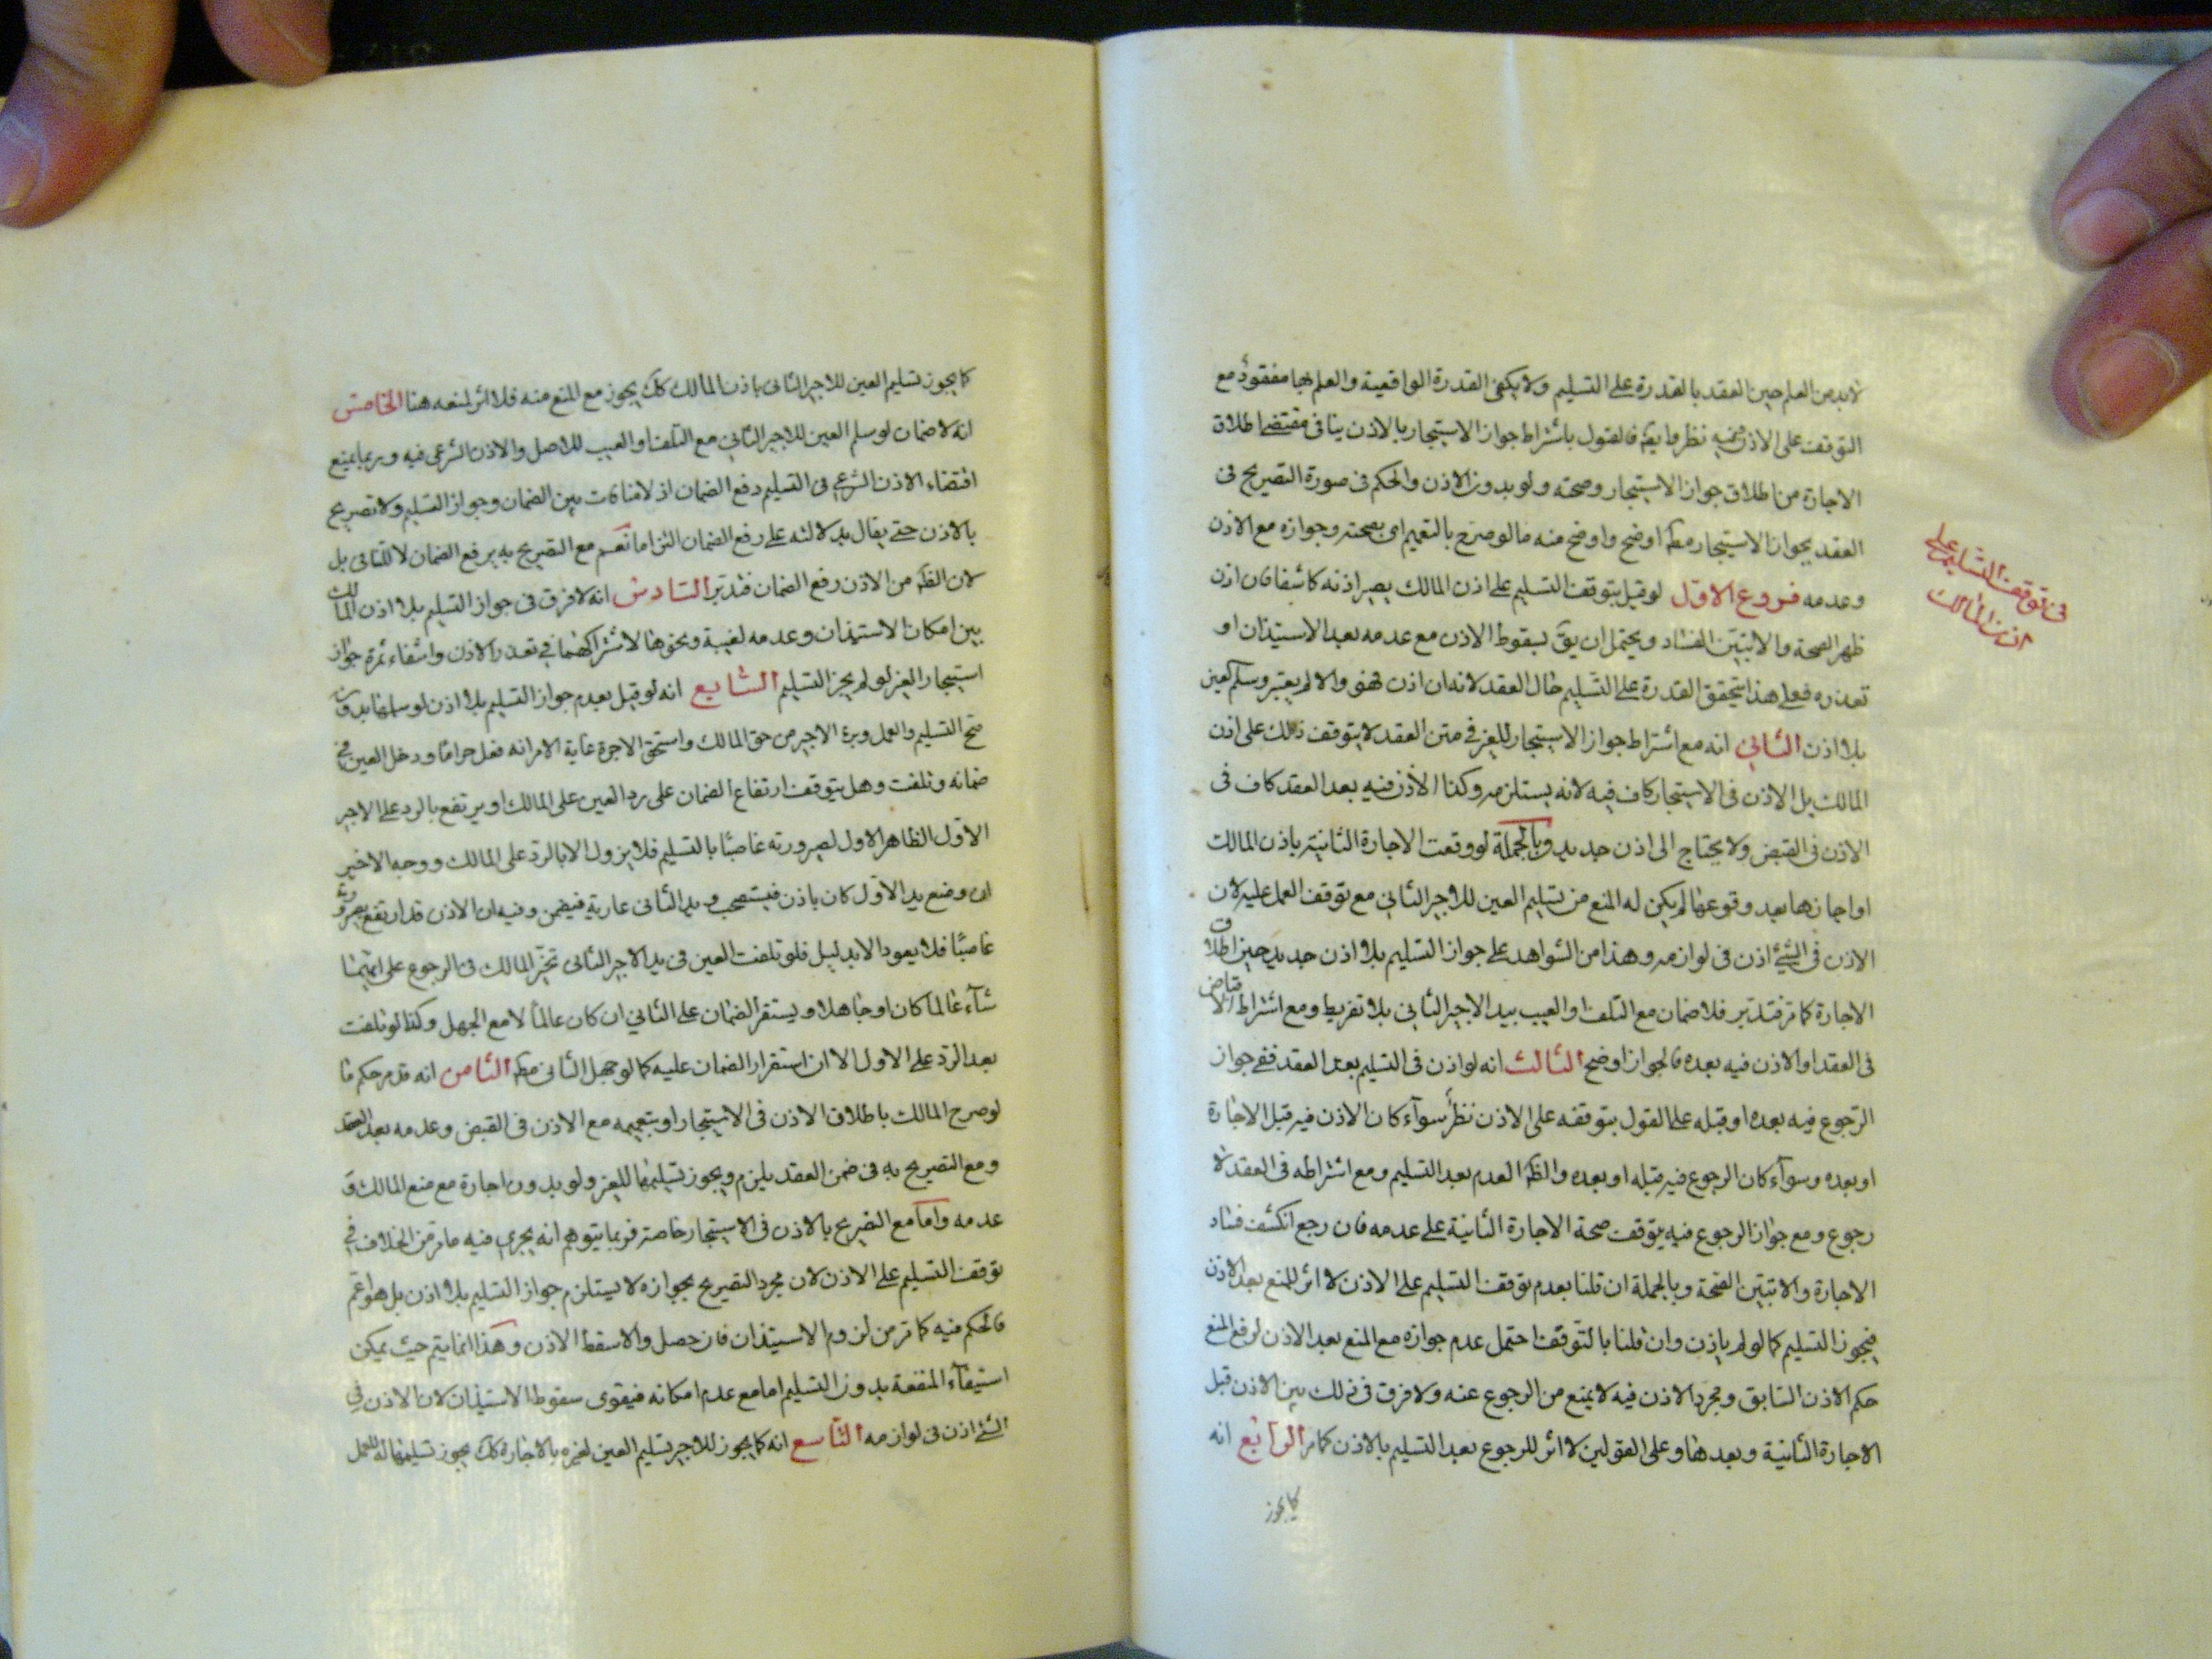 لابد من العلم حين العقد بالقدرة على التسليم ولا يكفى القدرة الواقعية والعلم بها مفقود مع
التوقف على الاذن ففيه نظر ما يقه فالقول باشتراط جواز الاستيجار بالاذن ينافى مقتضى اطلاق
الاجارة من اطلاق جواز الاستيجار وصحته ولو بدون الاذن والحكم فى صورة التصريح فى
العقد بجواز الاستيجار مطه اوضح واوضح منه ما لو صرح بالتعميم اى بصحته وجوازه مع الاذن
وعدمه فروع الاول لو قيل بتوقف التسليم على اذن المالك يصير اذنه كاشفا فان اذن
ظهر الصحة والا تبين الفساد ويحتمل ان يق بسقوط الاذن مع عدمه بعد الاستيذان او
تعذره فعلى هذا يتحقق القدرة على التسليم حال العقد لانه ان اذن فهو والا لم يعتبر وسلم العين
بلا اذن الثانى انه مع اشتراط جواز الاستيجار للغير فى متن العقد لا يتوقف ذلك على اذن
المالك بل الاذن فى الاستيجار كاف فيه لانه يستلزمه وكذا الاذن فيه بعد العقد كاف فى
الاذن فى القبض ولا يحتاج الى اذن جديد وبالجملة لو وقعت الاجارة الثانية باذن المالك
او اجازها بعد وقوعها لم يكن له المنع من تسليم العين للاجير الثانى مع توقف العمل عليه لان
الاذن فى الشئ اذن فى لوازمه وهذا من الشواهد على جواز التسليم بلا اذن جديد حين اطلاق
الاجارة كما مر فتدبر فلا ضمان مع التلف او العيب بيد الاجير الثانى بلا تفريط ومع اشتراط الاقباض
فى العقد او الاذن فيه بعده فالجواز اوضح الثالث انه لو اذن فى التسليم بعد العقد ففى جواز
الرجوع فيه بعده او قبله على القول بتوقفه على الاذن نظر سوآء كان الاذن فيه قبل الاجارة
او بعده وسوآء كان الرجوع فيه قبله او بعده والظه العدم بعد التسليم ومع اشتراطه فى العقد لا
رجوع ومع جواز الرجوع فيه يتوقف صحة الاجارة الثانية على عدمه فان رجع انكشف فساد
الاجارة والا تبين الصحة وبالجملة ان قلنا بعدم توقف التسليم على الاذن لا اثر للمنع بعد الاذن
فيجوز التسليم كما لو لم ياذن وان قلنا بالتوقف احتمل عدم جوازه مع المنع بعد الاذن لرفع المنع
حكم الاذن السابق ومجرد الاذن فيه لا يمنع من الرجوع عنه ولا فرق فى ذلك بين الاذن قبل
الاجارة الثانية وبعدها وعلى القولين لا اثر للرجوع بعد التسليم بالاذن كما مر الرابع انه
كما يجوز
فى توقف التسليم على
اذن المالك
كما يجوز تسليم العين للاجير الثانى باذن المالك كك يجوز مع المنع منه فلا اثر لمنعه هنا الخامس
انه لا ضمان لو سلم العين للاجير الثانى مع التلف او العيب للاصل والاذن الشرعى فيه وربما يمنع
اقتضاء الاذن الشرعى فى التسليم دفع الضمان اذ لا منافات بين الضمان وجواز التسليم ولا تصريح
بالاذن حتى يقال بدلالته على رفع الضمان التزاما نعم مع التصريح به يرفع الضمان لا للثانى بل
لان الظه من الاذن رفع الضمان فتدبر السادس انه لا فرق فى جواز التسليم بلا اذن المالك
بين امكان الاستيذان وعدمه لغيبة ونحوها لاشتراكهما فى تعذر الاذن وانتفاء ثمرة جواز
استيجار الغير لو لم يجز التسليم السابع انه لو قيل بعدم جواز التسليم بلا اذن لو سلمها بدون
صح التسليم والعمل وبرئ الاجير من حق المالك واستحق الاجرة غاية الامر انه فعل حراما ودخل العين فى
ضمانه وتلفت وهل يتوقف ارتفاع الضمان على رد العين على المالك او يرتفع بالرد على الاجير
الاول الظاهر الاول لصيرورته غاصبا بالتسليم فلا يزول الا بالرد على المالك ووجه الاخير
ان وضع يد الاول كان باذن فيستصحب ويد الثانى عارية فيضمن وفيه ان الاذن قد ارتفع بصيرورته
غاصبا فلا يعود الا بدليل فلو تلفت العين فى يد الاجير الثانى تخير المالك فى الرجوع على ايهما
شآء عالما كان او جاهلا ويستقر الضمان على الثانى ان كان عالما لا مع الجهل وكذا لو تلفت
بعد الرد على الاول الا ان استقرار الضمان عليه كما لو جهل الثانى مطه الثامن انه قد مر حكم ما
لو صرح المالك باطلاق الاذن فى الاستيجار او بتعميمه مع الاذن فى القبض وعدمه بعد العقد
ومع التصريح به فى ضمن العقد يلزم ويجوز تسليمها للغير ولو بدون اجارة مع منع المالك و
عدمه واما مع التصريح بالاذن فى الاستيجار خاصة فربما يتوهم انه يجرى فيه ما مر من الخلاف فى
توقف التسليم على الاذن لان مجرد التصريح بجوازه لا يستلزم جواز التسليم بلا اذن بل هو اعم
فالحكم فيه كما مر من لزوم الاستيذان فان حصل والا سقط الاذن وهذا انما يتم حيث يمكن
استيفآء المنفعة بدون التسليم اما مع عدم امكانه فيقوى سقوط الاستيذان لان الاذن فى
الشئ اذن فى لوازمه التاسع انه كما يجوز للاجير تسليم العين لغيره بالاجارة كك يجوز تسليمها له للعمل